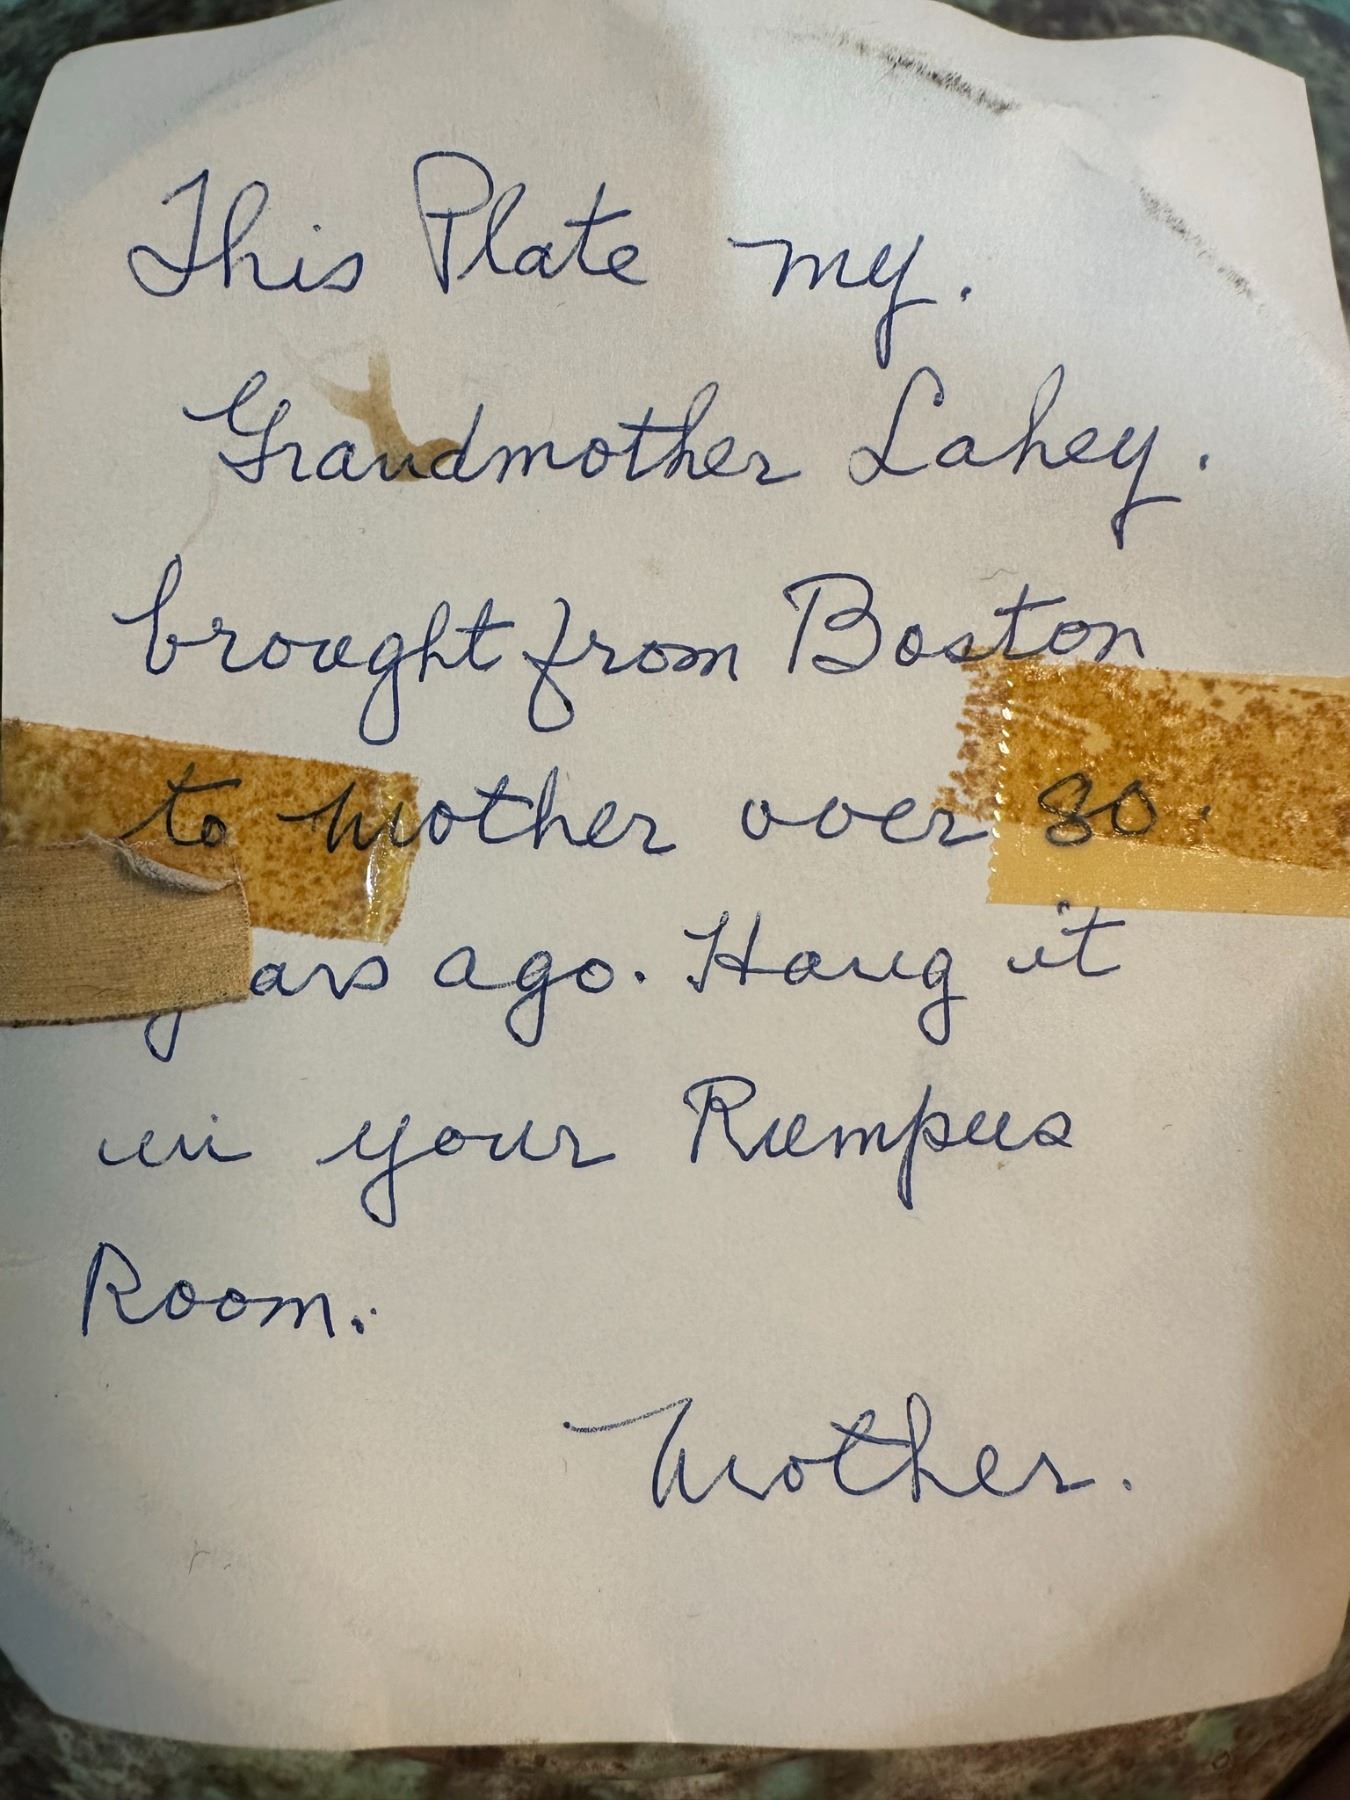 This Plate my.
Grandmother Lahey.
brought from Boston
to Mother over 80.
ars ago. Hang it
in your Rumpus
Room.
Mother.